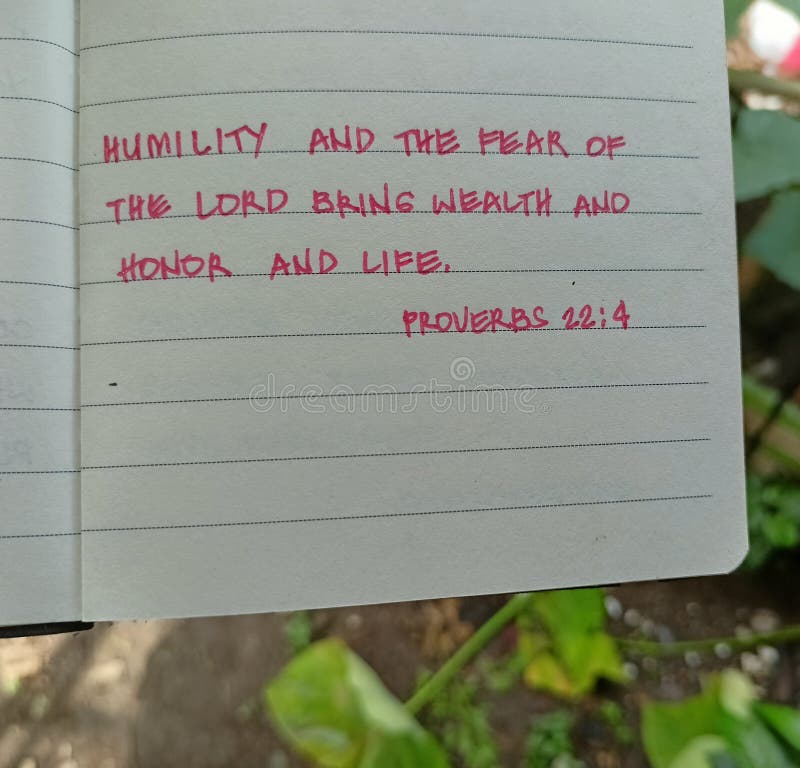 HUMILITY AND THE FEAR OF
THE LORD BRING WEALTH AND
HONOR AND LIFE.
PROVERBS 22:4
dreamstime.com